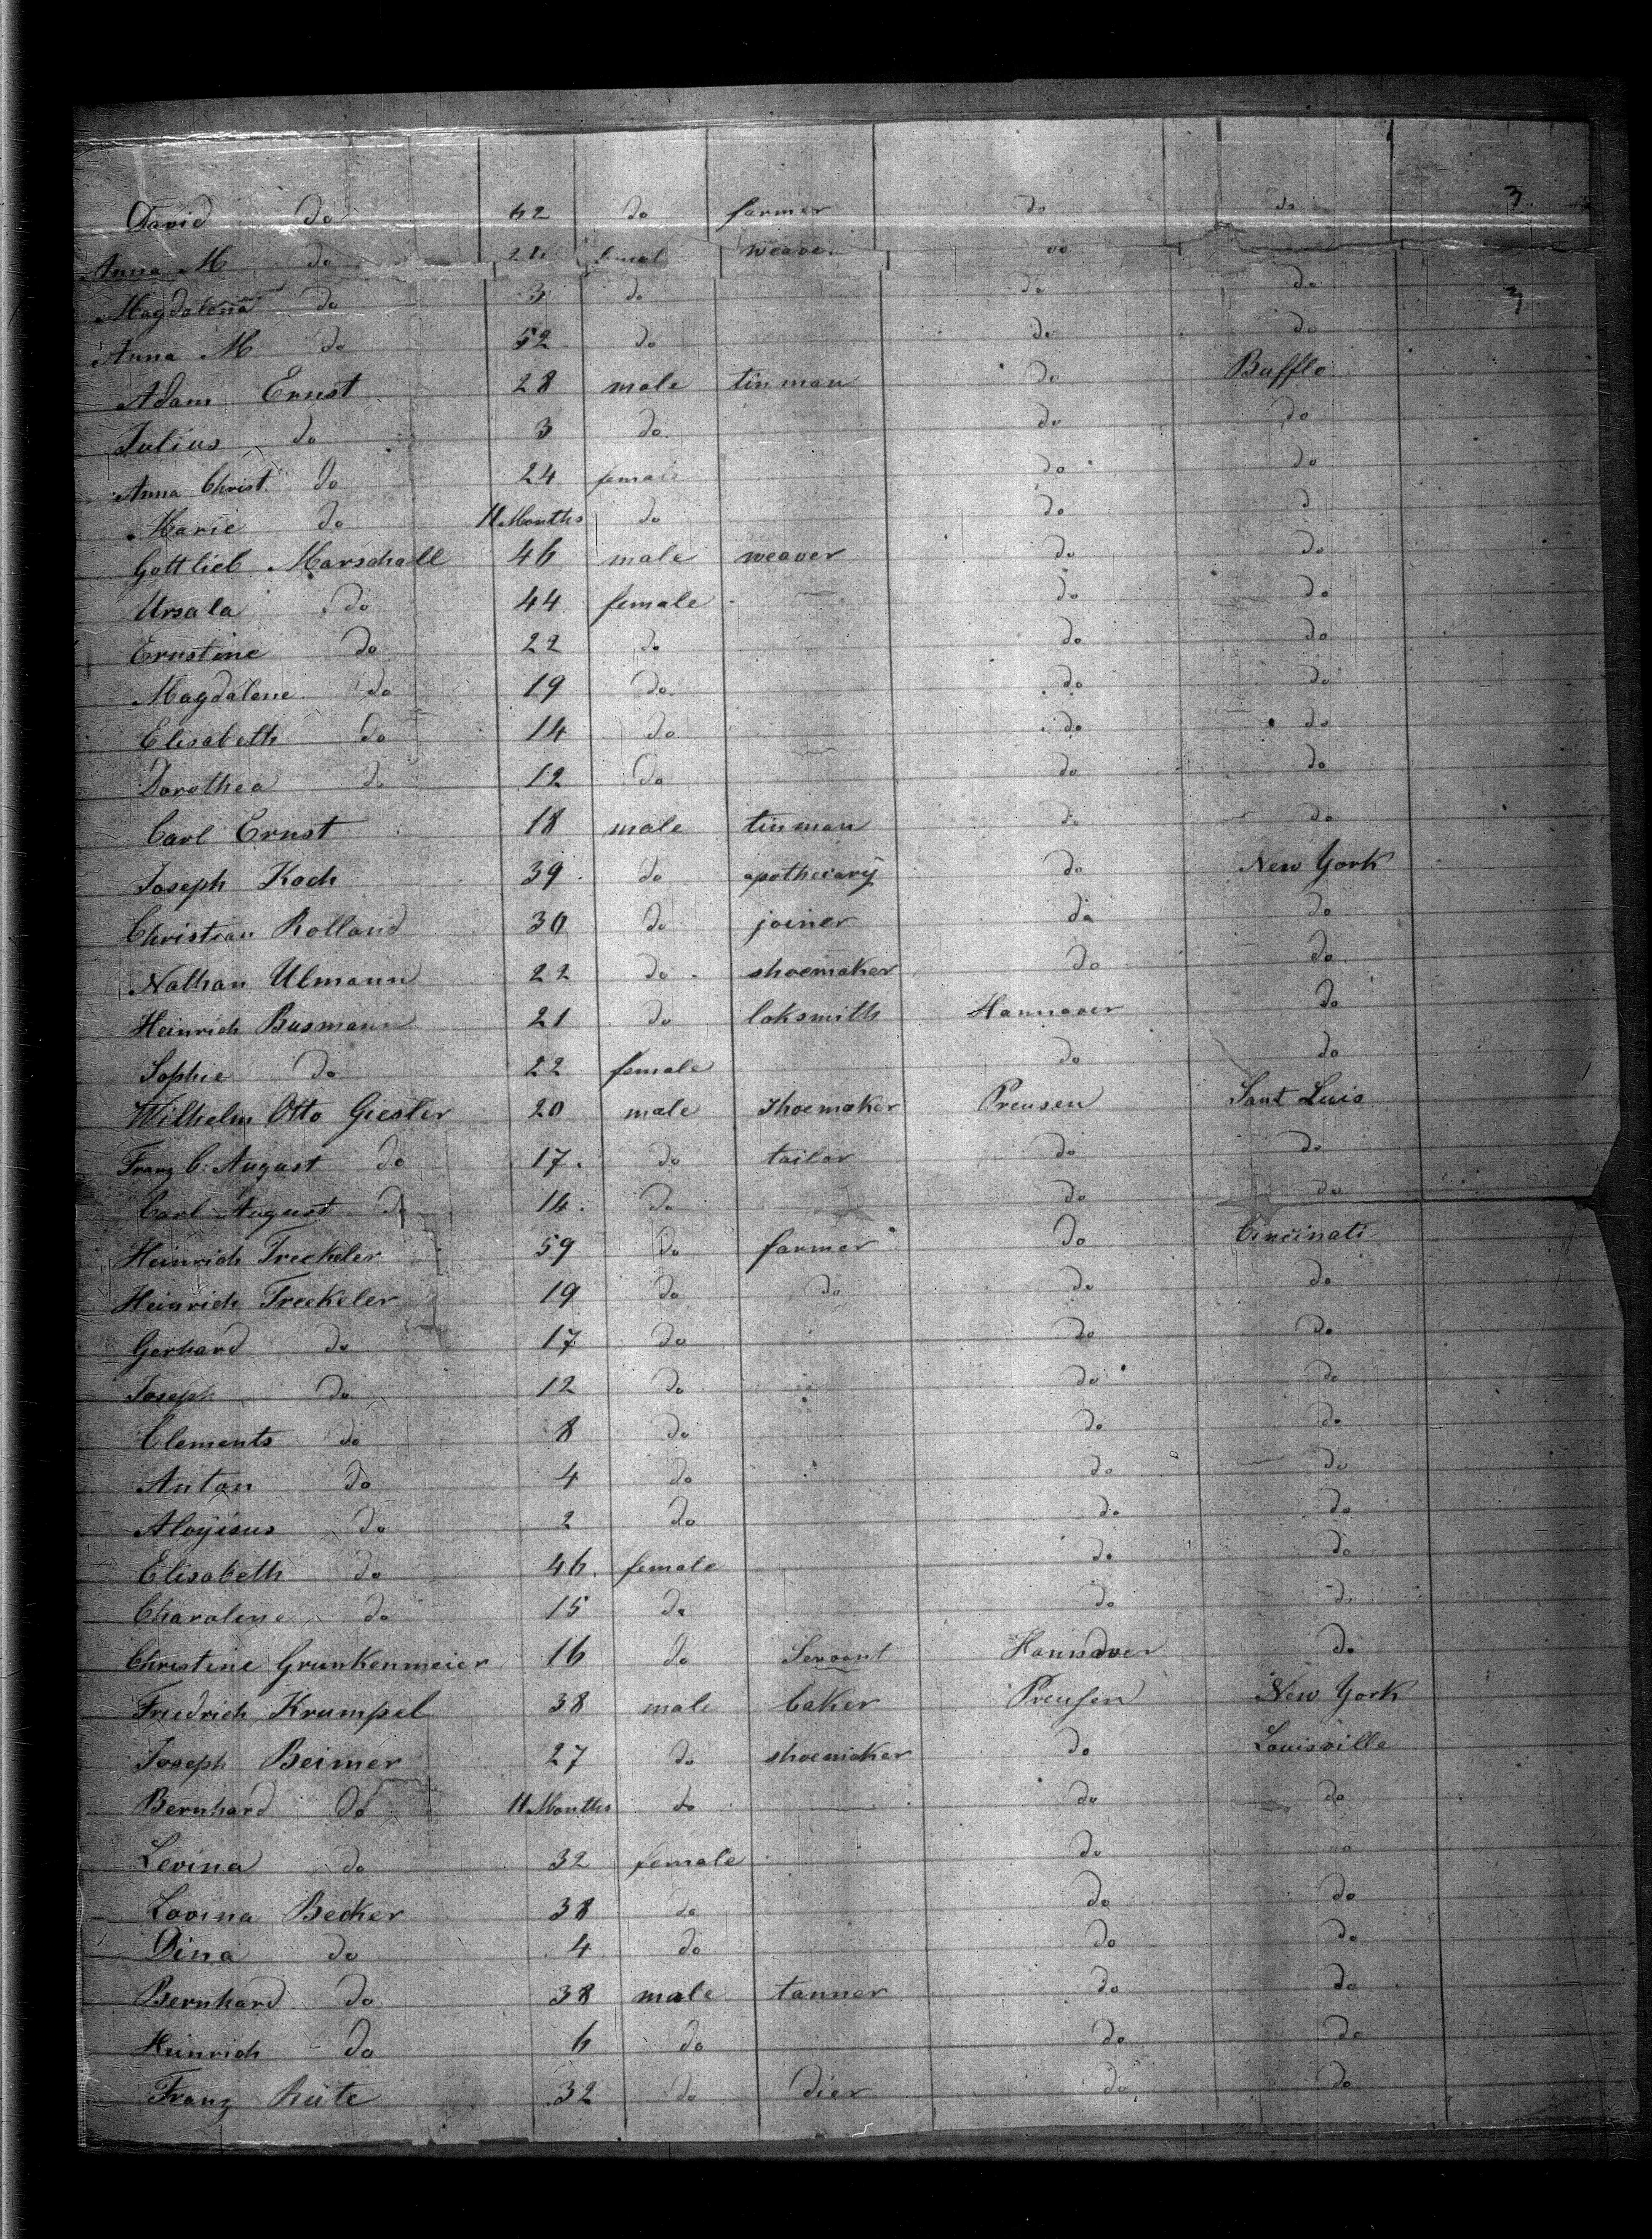 David do 62 do farmer do do 3
Anna M do femal weaver do
Magdalena do 3 do do do 3
Anna M do 52 do do do
Adam Ernst 28 male tinman do Bufflo
Julius do 3 do do do
Anna Christ. do 24 female do do
Marie do 11 Months do do d
Gottlieb Marschall 46 male weaver do do
Ursala do 44 female do do
Ernstine do 22 do do do
Magdalene do 19 do do do
Elisabeth do 14 do do do
Dorothea do 12 do do do
Carl Ernst 18 male tinman do do
Joseph Koch 39 do apothecary do New York
Christian Rolland 30 do joiner do do
Nathan Ulmann 22 do shoemaker do do
Heinrich Busmann 21 do loksmith Hannover do
Sophie do 22 female do do
Wilhelm Otto Giesler 20 male shoemaker Preusen Sant Luis
Franz C. August do 17 do tailor do do
Carl August do 14 do do do
Heinrich Treckeler 59 do farmer do Cincinati
Heinrich Treckeler 19 do do do do
Gerhard do 17 do do do
Joseph do 12 do do do
Clements do 8 do do do
Anton do 4 do do do
Aloyisus do 2 do do do
Elisabeth do 46 female do do
Charolene do 15 do do do
Christine Grunkenmeier 16 do Servant Hannover do
Friedrich Krumpel 38 male baker Preusen New York
Joseph Beimer 27 do shoemaker do Louisville
Bernhard do 11 Months do do do
Levina do 32 female do do
Lovina Becker 38 do do do
Dina do 4 do do do
Bernhard do 38 male tanner do do
Heinrich do 6 do do do
Franz Rute 32 do dier do do